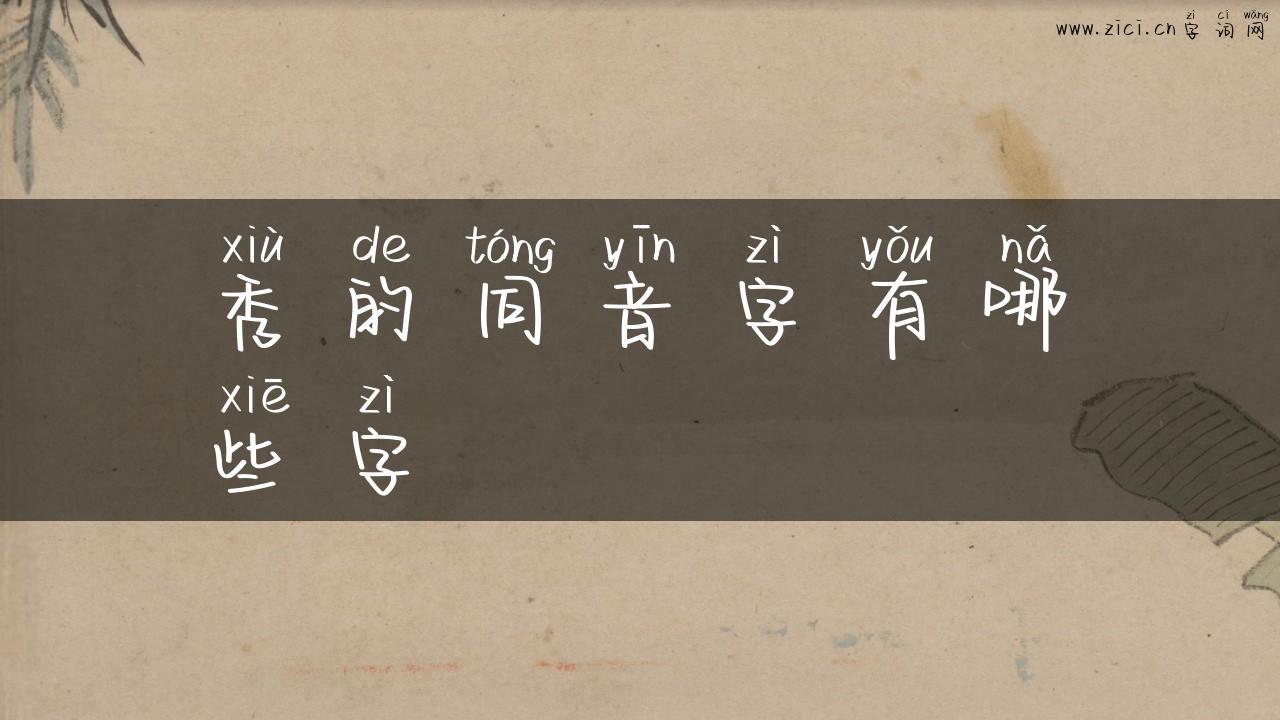 zì cí wǎng
www.zici.cn 字词网
xiù de tóng yīn zì yǒu nǎ
秀的同音字有哪
xiē zì
些字